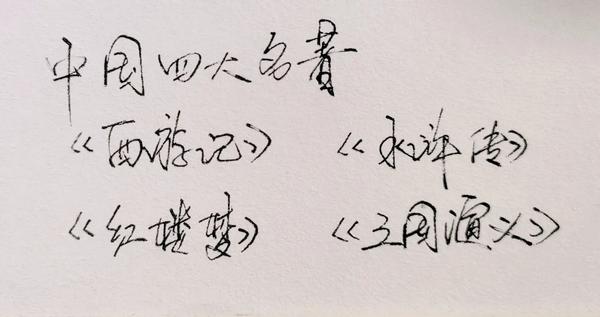 中国四大名著
《西游记》 《水浒传》
《红楼梦》 《三国演义》